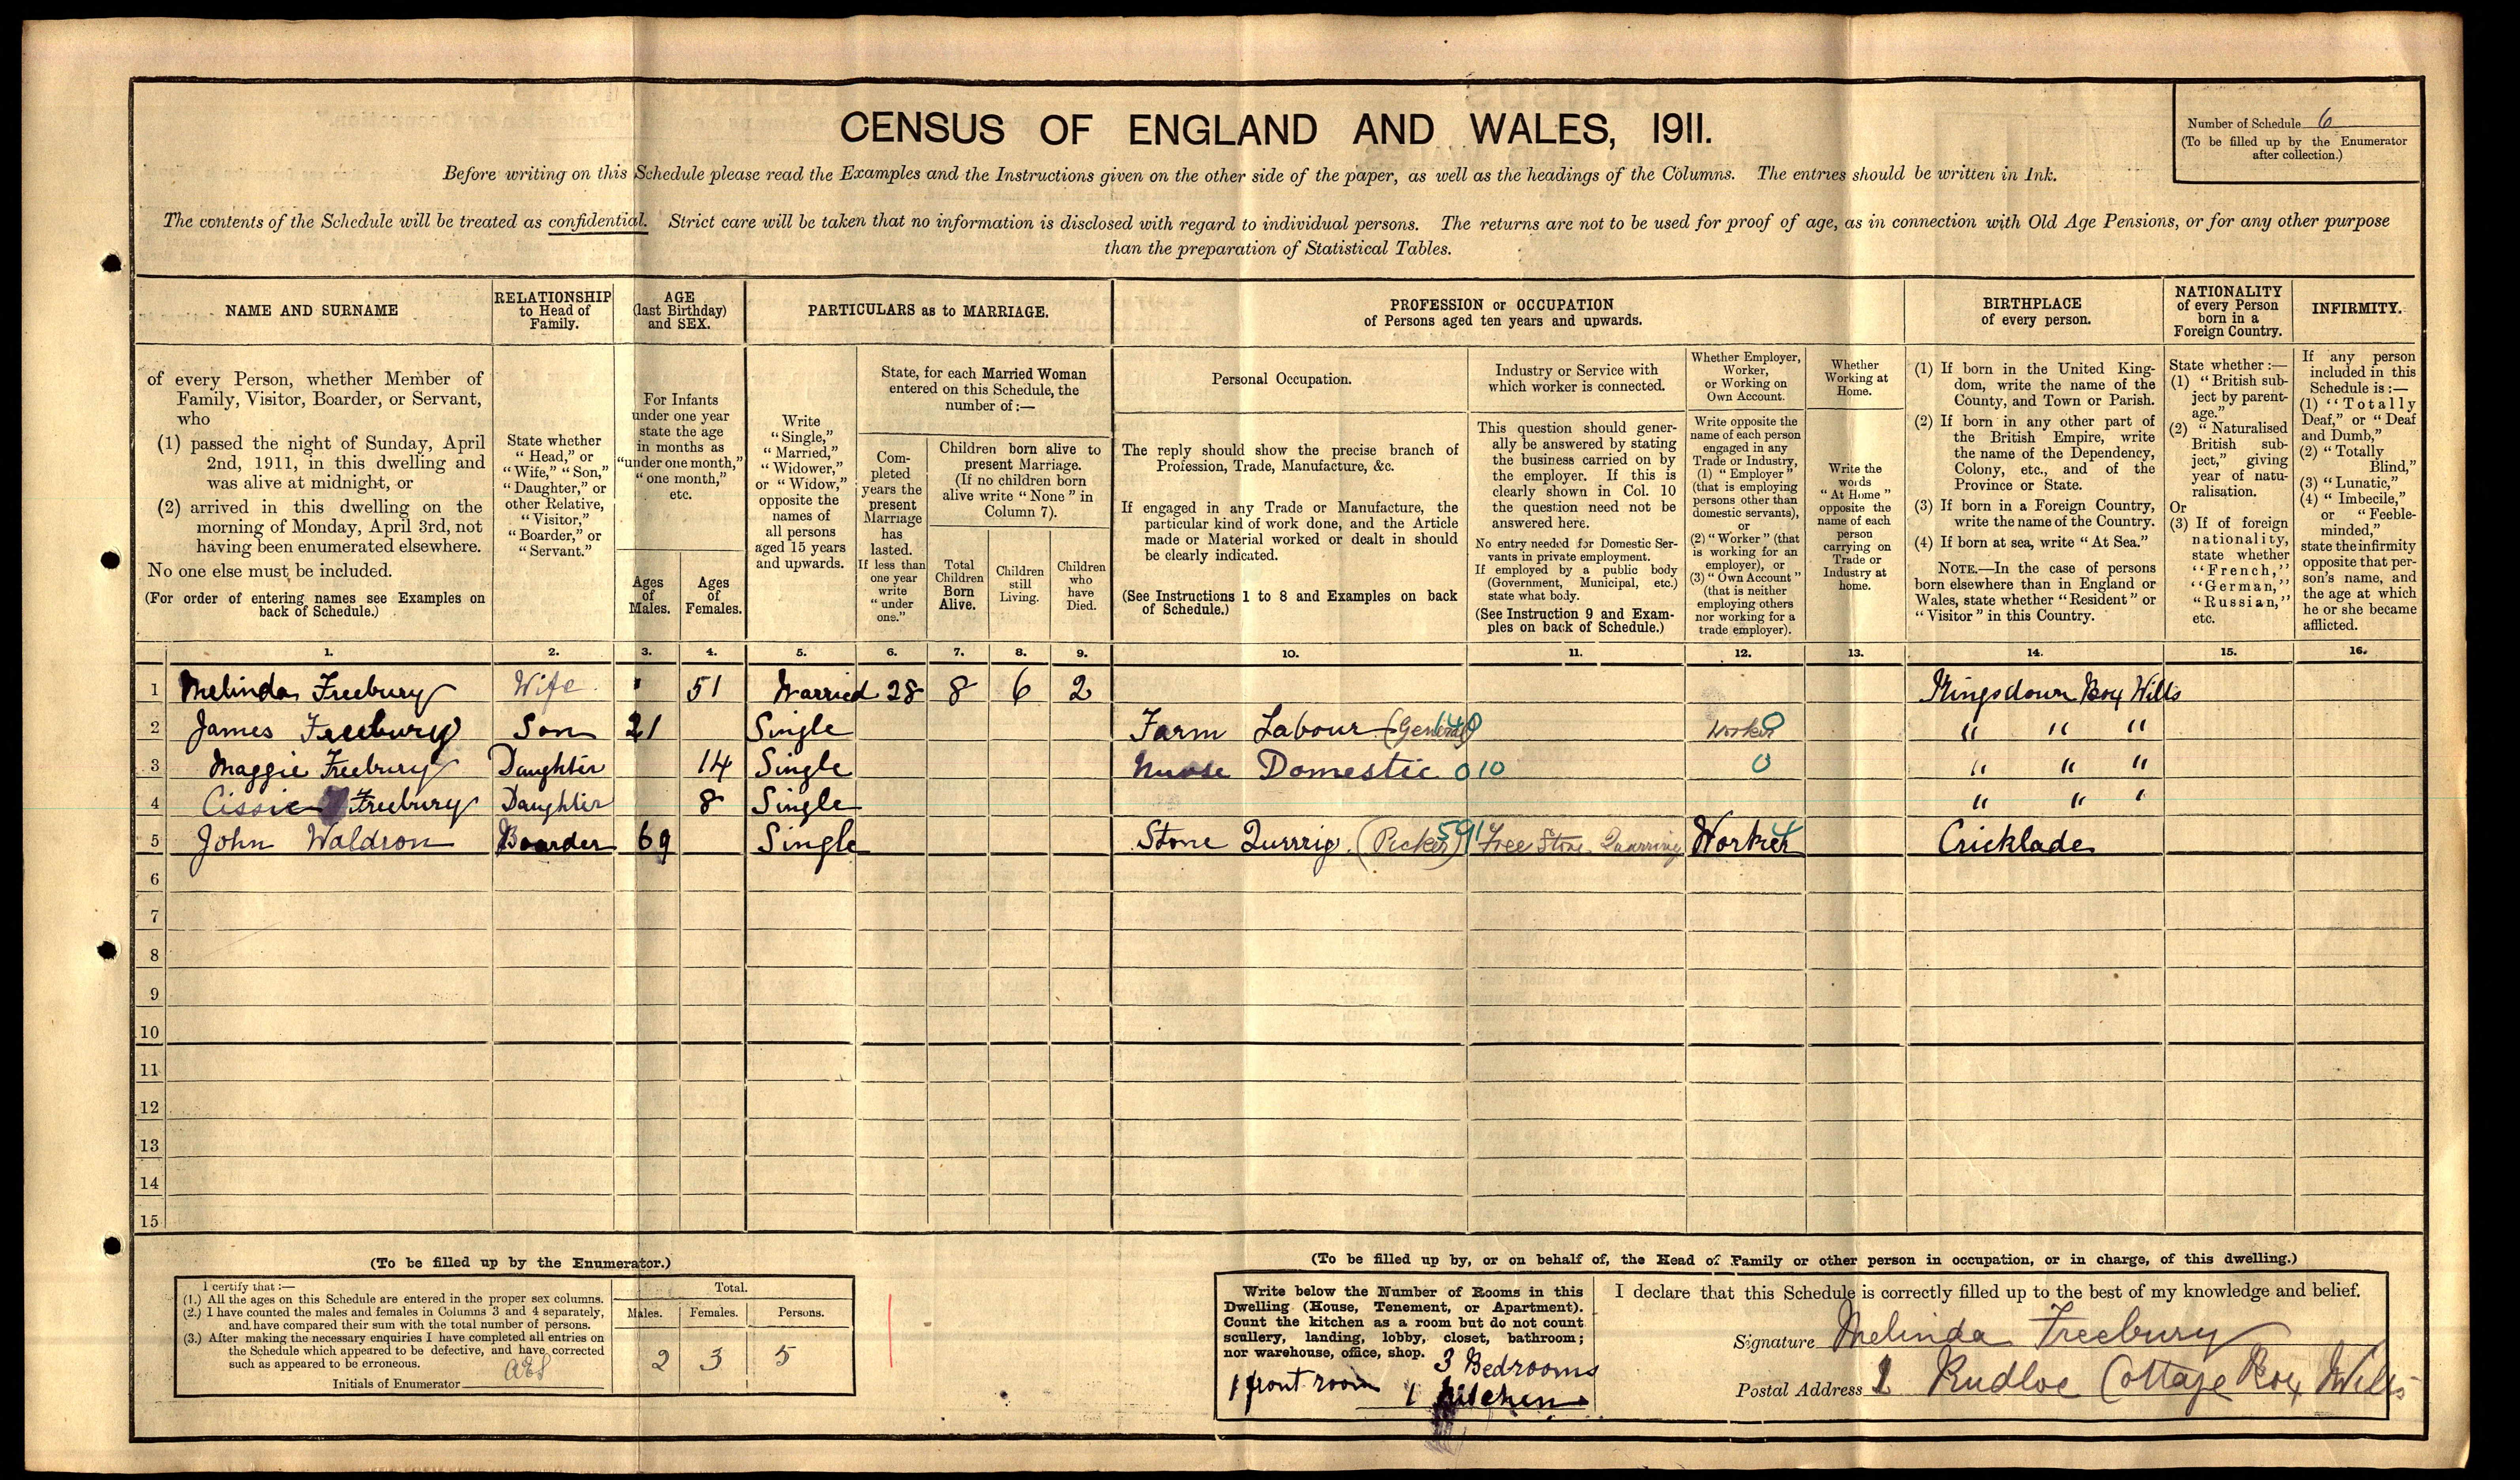 CENSUS OF ENGLAND AND WALES, 1911.
Number of Schedule 6
(To be filled up by the Enumerator
after collection.)
Before writing on this Schedule please read the Examples and the Instructions given on the other side of the paper, as well as the headings of the Columns. The entries should be written in Ink.
The contents of the Schedule will be treated as confidential. Strict care will be taken that no information is disclosed with regard to individual persons. The returns are not to be used for proof of age, as in connection with Old Age Pensions, or for any other purpose
than the preparation of Statistical Tables.
NAME AND SURNAME
of every Person, whether Member of
Family, Visitor, Boarder, or Servant,
who
(1) passed the night of Sunday, April
2nd, 1911, in this dwelling and
was alive at midnight, or
(2) arrived in this dwelling on the
morning of Monday, April 3rd, not
having been enumerated elsewhere.
No one else must be included.
(For order of entering names see Examples on
back of Schedule.)
RELATIONSHIP
to Head of
Family.
State whether
"Head," or
"Wife," "Son,"
"Daughter," or
other Relative,
"Visitor,"
"Boarder," or
"Servant."
AGE
(last Birthday)
and SEX.
For Infants
under one year
state the age
in months as
"under one month,"
"one month,"
etc.
Ages
of
Males.
Ages
of
Females.
PARTICULARS as to MARRIAGE.
Write
"Single,"
"Married,"
"Widower,"
or "Widow,"
opposite the
names of
all persons
aged 15 years
and upwards.
State, for each Married Woman
entered on this Schedule, the
number of:—
Com-
pleted
years the
present
Marriage
has
lasted.
If less than
one year
write
"under
one."
Children born alive to
present Marriage.
(If no children born
alive write "None" in
Column 7).
Total
Children
Born
Alive.
Children
still
Living.
Children
who
have
Died.
PROFESSION or OCCUPATION
of Persons aged ten years and upwards.
Personal Occupation.
The reply should show the precise branch of
Profession, Trade, Manufacture, &c.
If engaged in any Trade or Manufacture, the
particular kind of work done, and the Article
made or Material worked or dealt in should
be clearly indicated.
(See Instructions 1 to 8 and Examples on back
of Schedule.)
Industry or Service with
which worker is connected.
This question should gener-
ally be answered by stating
the business carried on by
the employer. If this is
clearly shown in Col. 10
the question need not be
answered here.
No entry needed for Domestic Ser-
vants in private employment.
If employed by a public body
(Government, Municipal, etc.)
state what body.
(See Instruction 9 and Exam-
ples on back of Schedule.)
Whether Employer,
Worker,
or Working on
Own Account.
Write opposite the
name of each person
engaged in any
Trade or Industry,
(1) "Employer"
(that is employing
persons other than
domestic servants),
or
(2) "Worker" (that
is working for an
employer), or
(3) "Own Account"
(that is neither
employing others
nor working for a
trade employer).
Whether
Working at
Home.
Write the
words
"At Home"
opposite the
name of each
person
carrying on
Trade or
Industry at
home.
BIRTHPLACE
of every person.
(1) If born in the United King-
dom, write the name of the
County, and Town or Parish.
(2) If born in any other part of
the British Empire, write
the name of the Dependency,
Colony, etc., and of the
Province or State.
(3) If born in a Foreign Country,
write the name of the Country.
(4) If born at sea, write "At Sea."
NOTE.—In the case of persons
born elsewhere than in England or
Wales, state whether "Resident" or
"Visitor" in this Country.
NATIONALITY
of every Person
born in a
Foreign Country.
State whether:—
(1) "British sub-
ject by parent-
age."
(2) "Naturalised
British sub-
ject," giving
year of natu-
ralisation.
Or
(3) If of foreign
nationality,
state whether
"French,"
"German,"
"Russian,"
etc.
INFIRMITY.
If any person
included in this
Schedule is:—
(1) "Totally
Deaf," or "Deaf
and Dumb,"
(2) "Totally
Blind,"
(3) "Lunatic,"
(4) "Imbecile,"
or "Feeble-
minded,"
state the infirmity
opposite that per-
son's name, and
the age at which
he or she became
afflicted.
1. 2. 3. 4. 5. 6. 7. 8. 9. 10. 11. 12. 13. 14. 15. 16.
1 Melinda Freebury Wife 51 Married 28 8 6 2 Kingsdown Box Wilts
2 James Freebury Son 21 Single Farm Labour (General) Worker 0 " " "
3 Maggie Freebury Daughter 14 Single Nurse Domestic 010 0 " " "
4 Cissie Freebury Daughter 8 Single " " "
5 John Waldron Boarder 69 Single Stone Qurrrig (Picker) 591 Free Stone Quarring Worker Cricklade
6
7
8
9
10
11
12
13
14
15
(To be filled up by the Enumerator.)
I certify that:—
(1.) All the ages on this Schedule are entered in the proper sex columns.
(2.) I have counted the males and females in Columns 3 and 4 separately,
and have compared their sum with the total number of persons.
(3.) After making the necessary enquiries I have completed all entries on
the Schedule which appeared to be defective, and have corrected
such as appeared to be erroneous.
Initials of Enumerator AES
Total.
Males. Females. Persons.
2 3 5
(To be filled up by, or on behalf of, the Head of Family or other person in occupation, or in charge, of this dwelling.)
Write below the Number of Rooms in this
Dwelling (House, Tenement, or Apartment).
Count the kitchen as a room but do not count
scullery, landing, lobby, closet, bathroom;
nor warehouse, office, shop.
3 Bedrooms
1 front room 1 kitchen
I declare that this Schedule is correctly filled up to the best of my knowledge and belief.
Signature Melinda Freebury
Postal Address 2 Rudloe Cottage Box Wilts